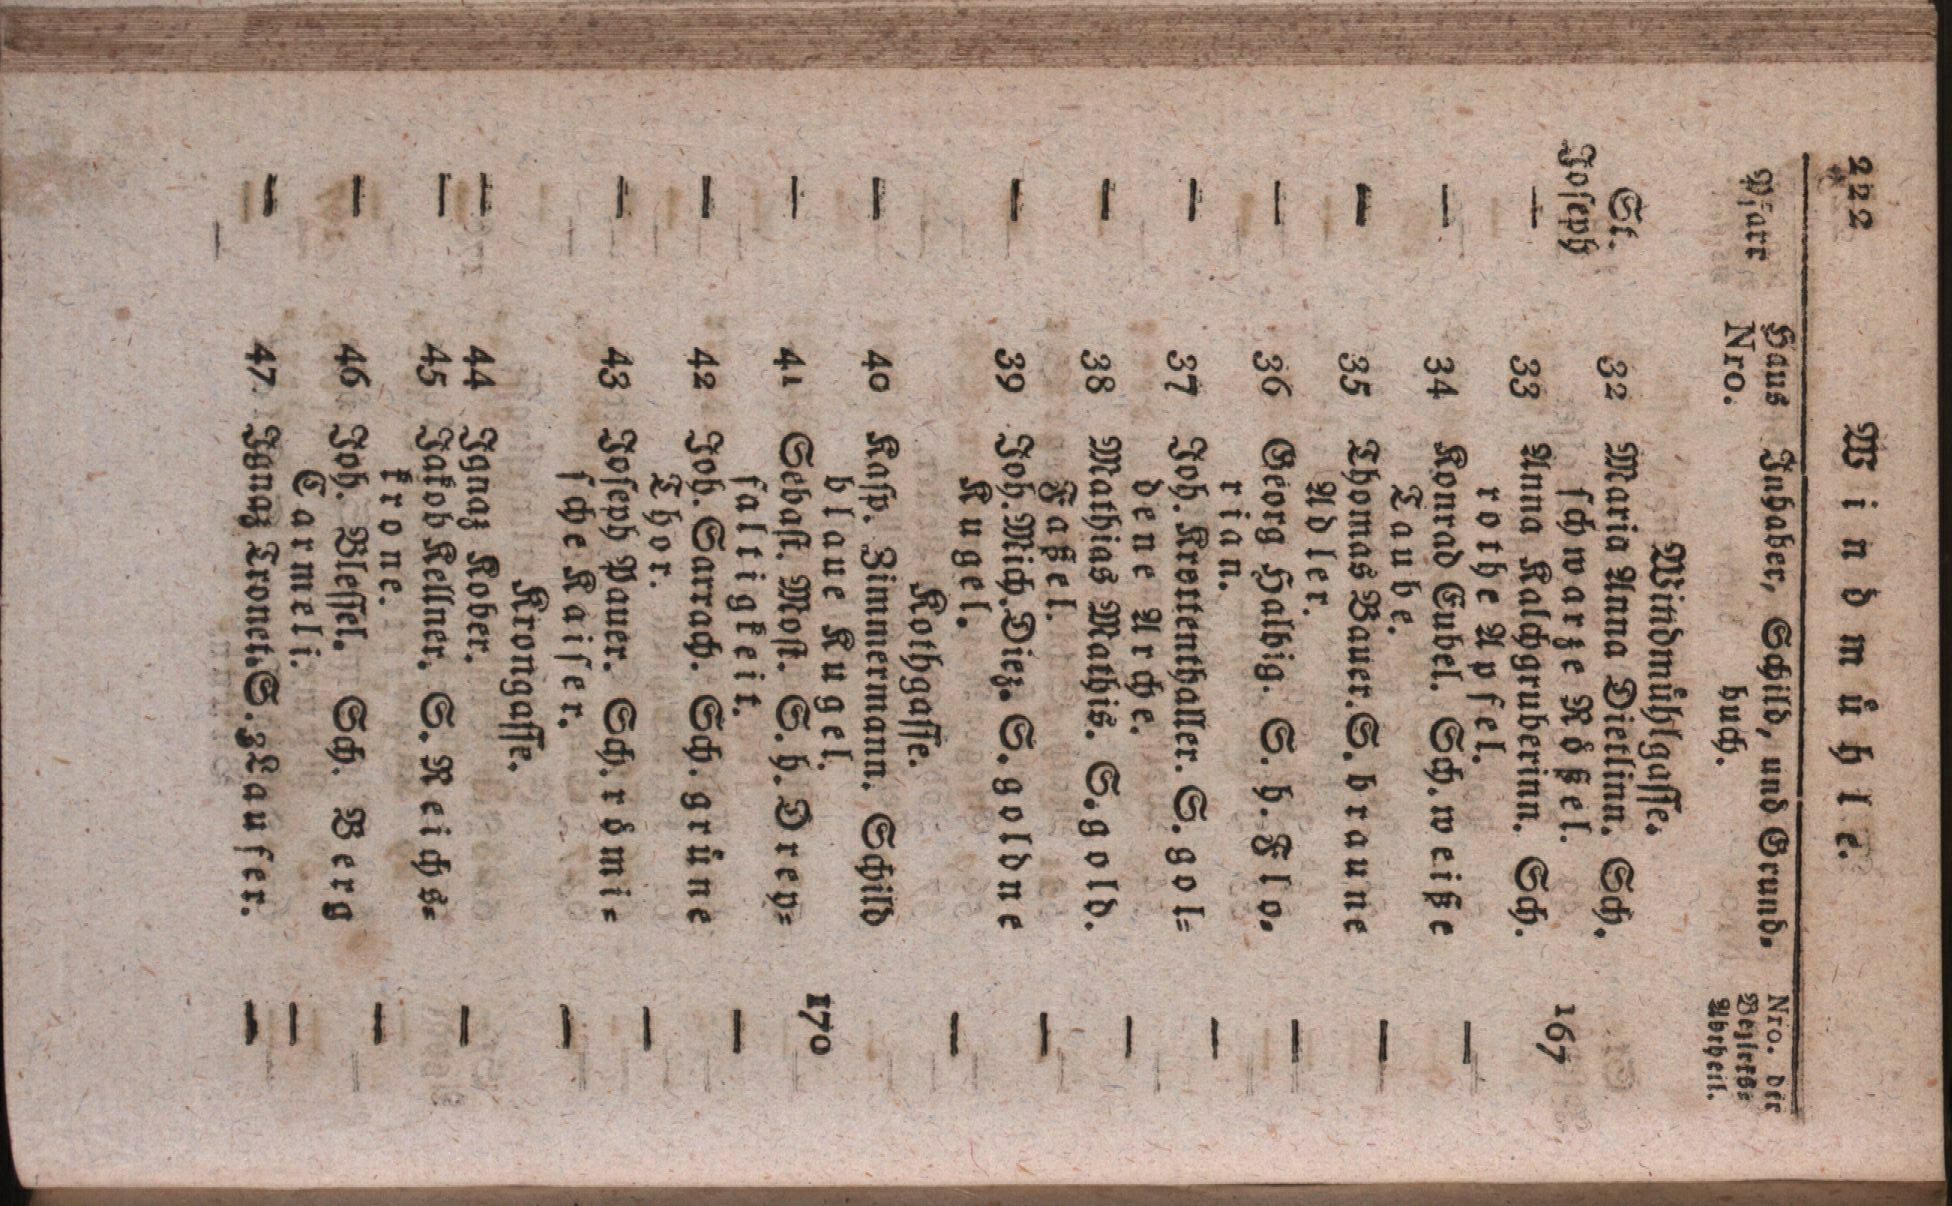 222 Windmühle.
Pfarr Haus Inhaber, Schild, und Grund- Nro. der
Nro. buch. Besitzs=
Abtheil.
Windmühlgasse.
St. 32 Maria Anna Dietlinn. Sch.
Joseph schwarze Rößel. 167
— 33 Anna Kalchgruberinn. Sch.
rothe Apfel. —
— 34 Konrad Eubel. Sch. weiße
Taube. —
— 35 Thomas Bauer. S. braune
Adler. —
— 36 Georg Halbig. S. h. Flo-
rian. —
— 37 Joh. Krottenthaller. S. gol=
dene Arche. —
— 38 Mathias Mathis. S. gold.
Faßel. —
— 39 Joh. Mich. Diez. S. goldne
Kugel. —
Kothgasse.
— 40 Kasp. Zimmermann. Schild
blaue Kugel. 170
— 41 Sebast. Most. S. h. Drey=
faltigkeit. —
— 42 Joh. Sarrach. Sch. grüne
Thor. —
— 43 Joseph Pauer. Sch. römi=
sche Kaiser. —
Krongasse.
— 44 Ignaz Kober. —
— 45 Jakob Kellner. S. Reichs=
krone. —
— 46 Joh. Blessel. Sch. Berg
Carmeli. —
— 47 Ignaz Tronet. S. 3 Laufer. —